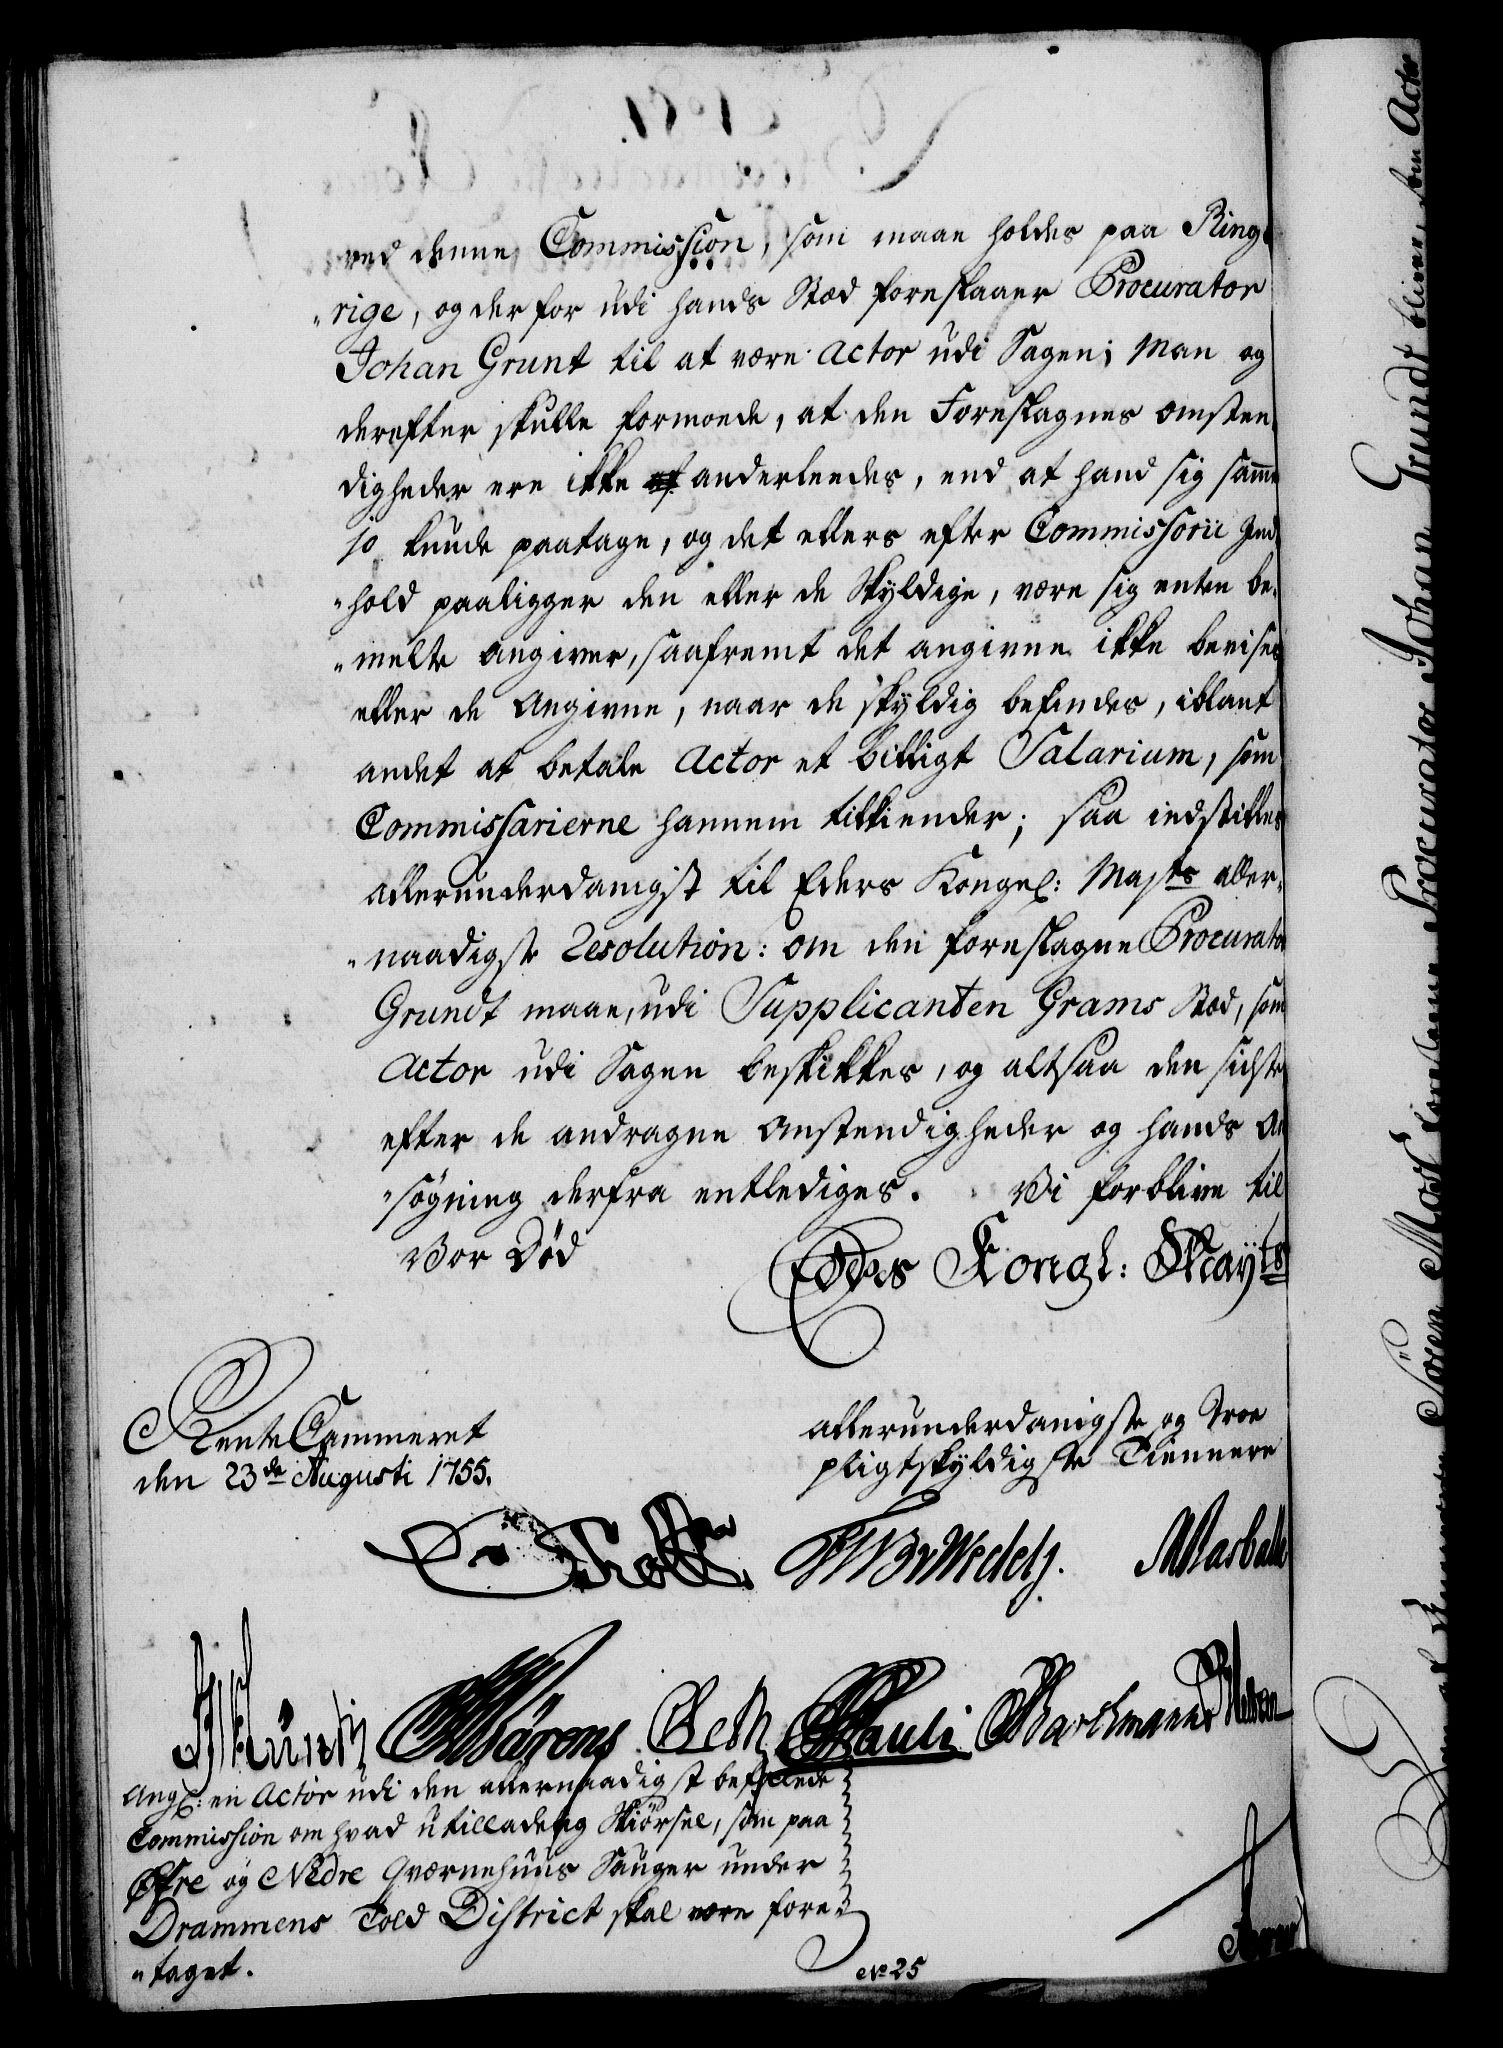 ved denne Commission, som maae holdes paa Ring-
"rige, og derfor udi hands Stæd foreslaaer Procurator
Johan Grunt til at være Actor udi Sagen; Man og
derefter skulle formoede, at den Foreslagnes Omsten-
digheder ere ikke anderleedes, end at hand sig samme
jo kunde paatage, og det ellers efter Commissorii Ind-
"hold paaligger den eller de Skyldige, være sig enten be-
"melte Angiver, saafremt det angivne ikke bevises
eller de Angivne, naar de skyldig befindes, iblant
andet at betale Actor et billigt Salarium, som
Commissarierne hannem tilkiender; Saa indstilles
allerunderdanigst til Eders Kongel: Majts aller-
"naadigste Resolution: om den foreslagne Procurator
Grundt maae, udi Supplicanten Grams Stæd, som
Actor udi Sagen beskikkes, og altsaa den sidste
efter de andragne Omstendigheder og hands An-
"søgning derfra entlediges. Vi forblive til
Vor Død
Eders Kongl: Mayts
RenteCammeret
den 23de Augusti 1755.
allerunderdanigste og Troe
pligtskyldigste Tiennere
Holst FWvWedelj.
Kürstz Wärens Seth Pauli Barchmann
Angl: en Actor udi den allernaadigst befalede
Commission om hvad utilladelig Skiørsel, som paa
Øfre og Nedre Qværnehuus Sauger under
Drammens Told District skal være fore-
"taget.
No 25
Grundt bliver, som Actor
Søren Procurator Johan